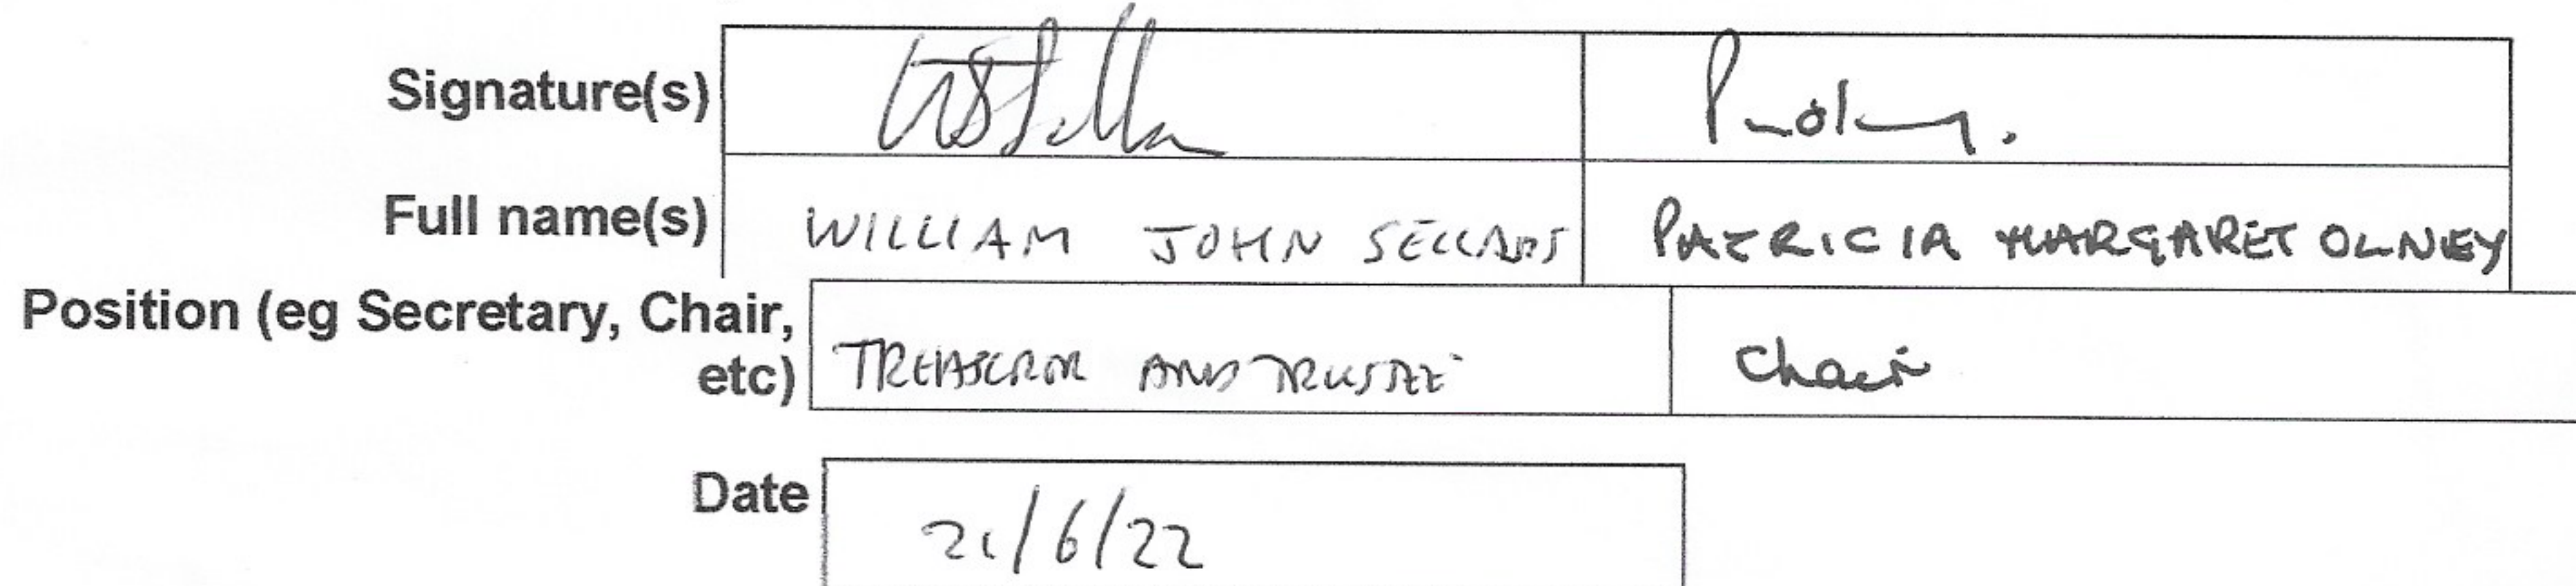 Signature(s)
Full name(s) WILLIAM JOHN SELLARS PATRICIA MARGARET OLNEY
Position (eg Secretary, Chair,
etc) TREASUROR AND TRUSTEE Chair
Date 21/6/22